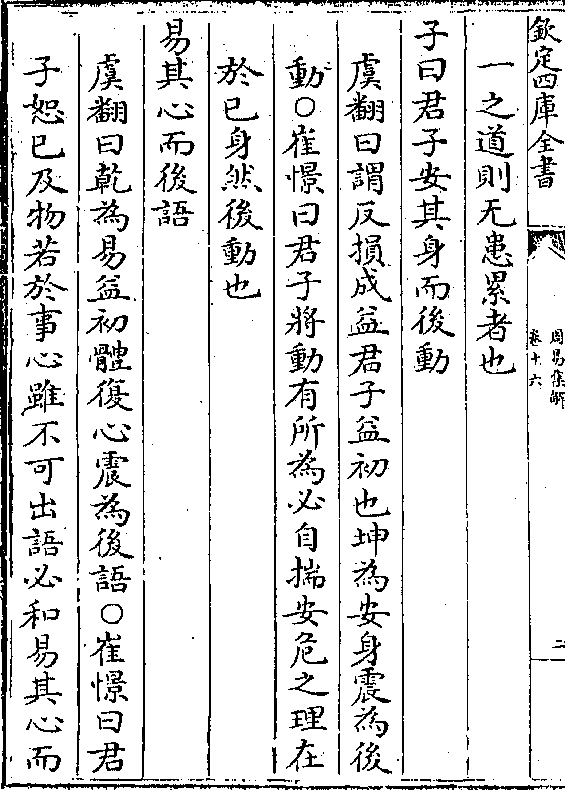 欽定四庫全書
周易集解
卷十六
二
一之道則无患累者也
子曰君子安其身而後動
虞翻曰謂反損成益君子益初也坤為安身震為後
動○崔憬曰君子將動有所為必自揣安危之理在
於已身然後動也
易其心而後語
虞翻曰乾為易益初體復心震為後語○崔憬曰君
子恕已及物若於事心雖不可出語必和易其心而